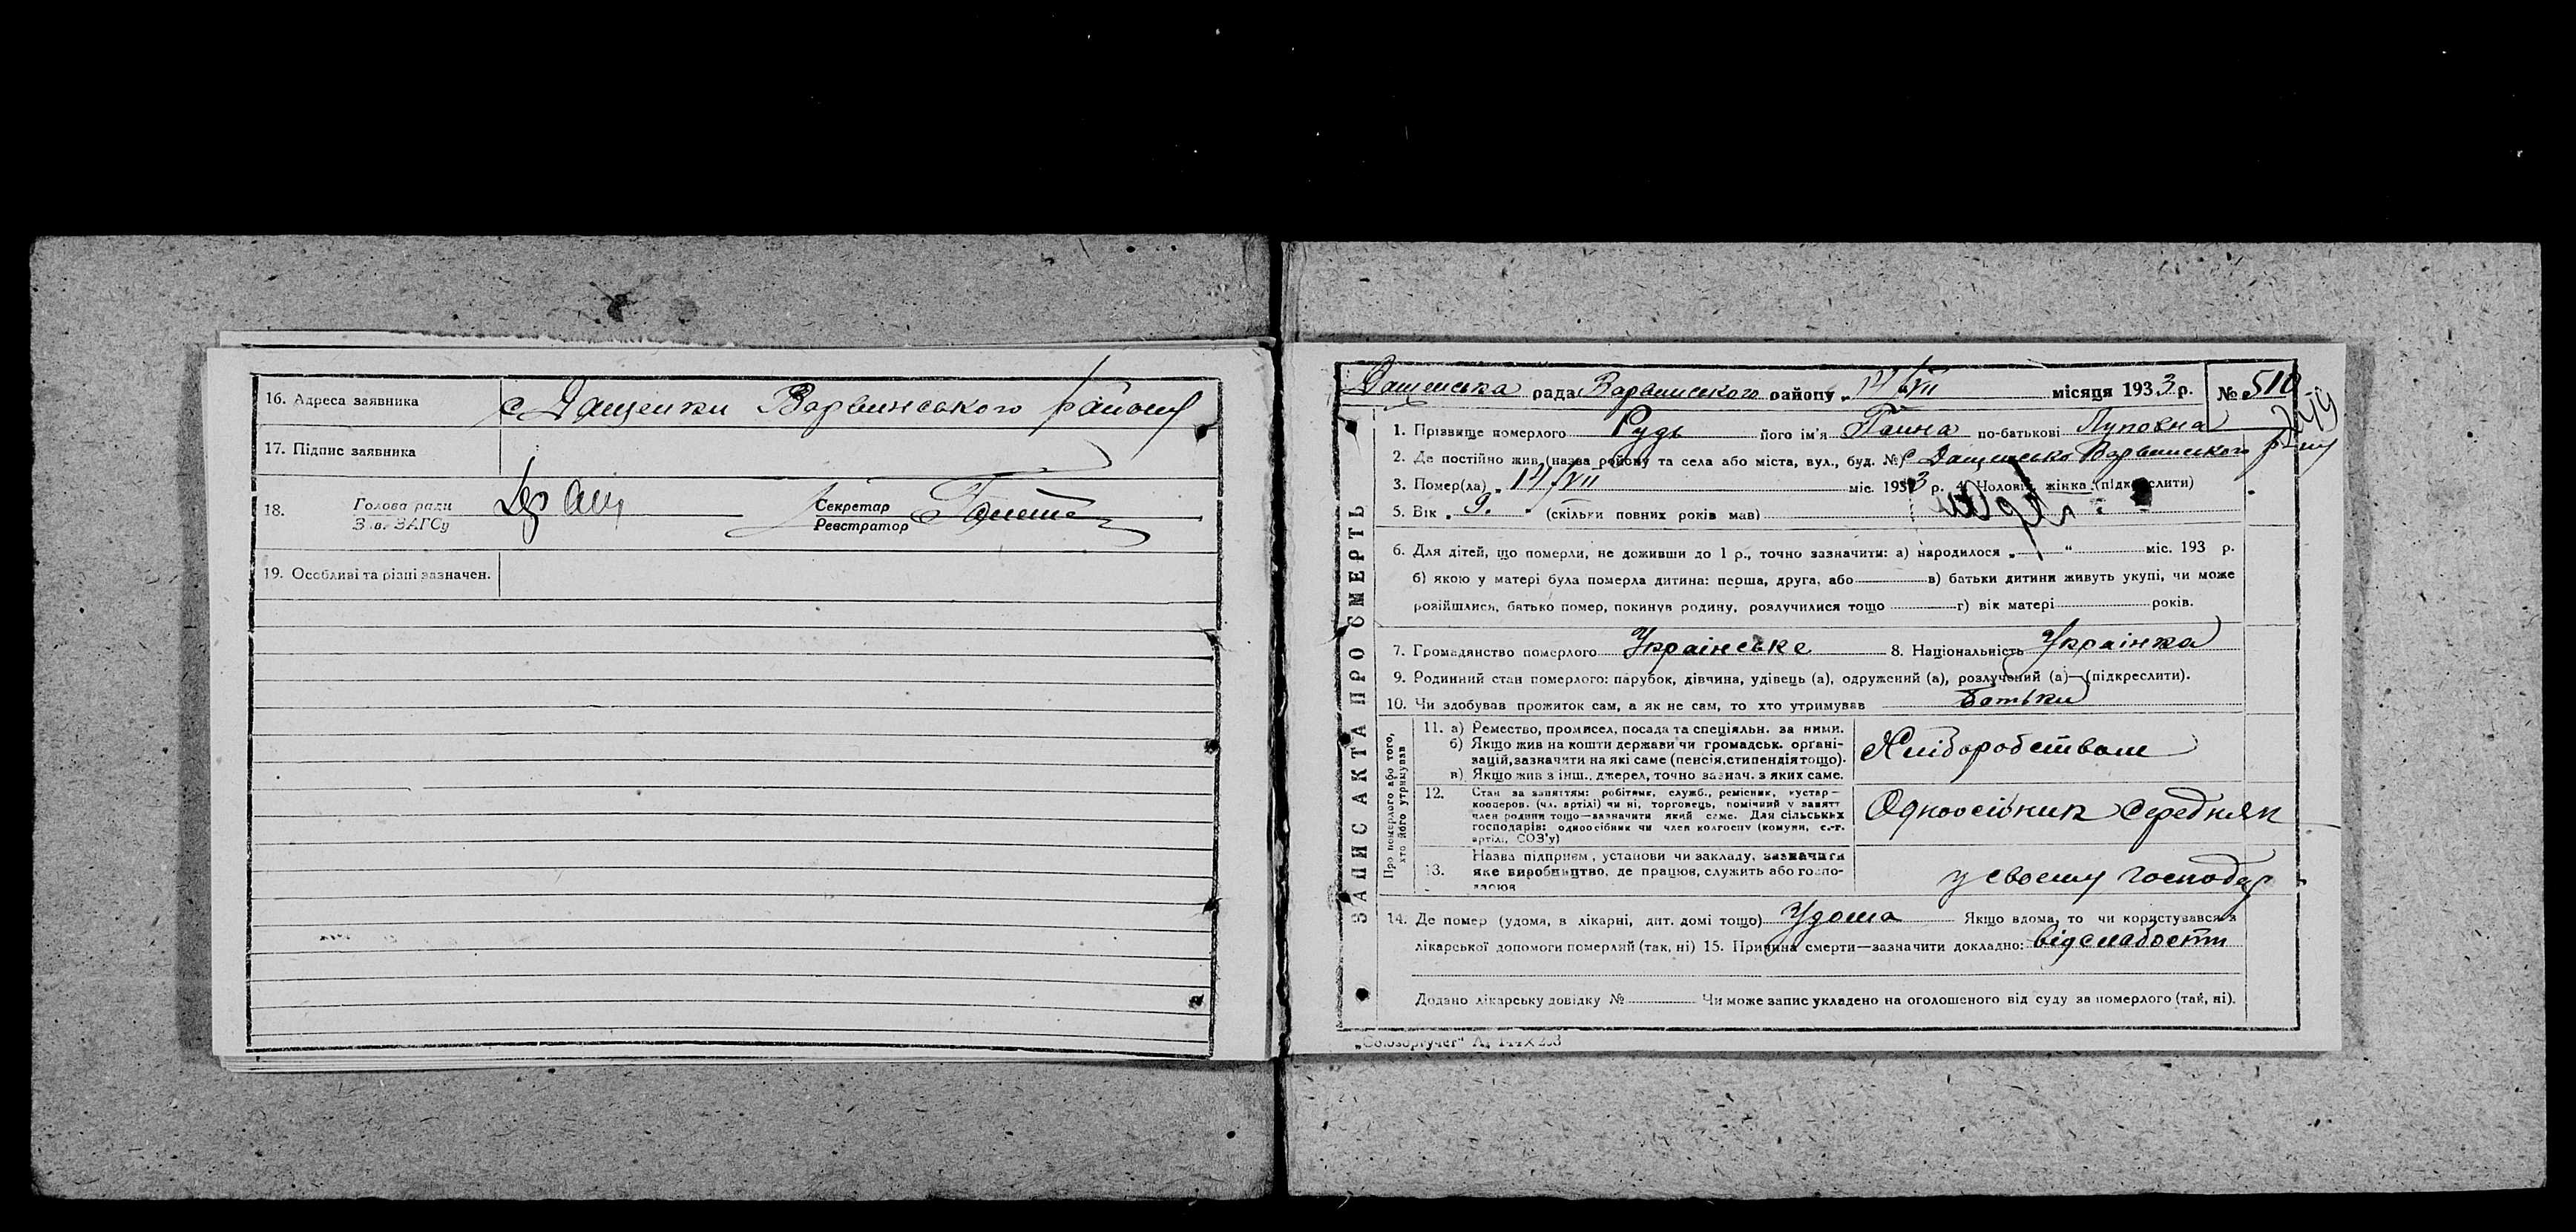 16. Адреса заявника с Дащенки Варвинського району
17. Підпис заявника
18. Голова ради Секретар
Зав. ЗАГСу Реєстратор
19. Особливі та різні зазначен.
ЗАПИС АКТА ПРО СМЕРТЬ
Дащенська рада Варвинського району „14/VII місяця 1933 р. № 510
1. Прізвище померлого Рудь його ім'я Ганна по-батькові
2. Де постійно жив (назва району та села або міста, вул., буд. №) с Дащенко Варвинського р-ну
3. Помер(ла) „ 14/VII міс. 1933 р. 4. Чоловік, жінка (підкреслити)
5. Вік „ 9. (скільки повних років мав)
6. Для дітей, що померли, не доживши до 1 р., точно зазначити: а) народилося „ “ міс. 193 р.
б) якою у матері була померла дитина: перша, друга, або в) батьки дитини живуть укупі, чи може
розійшлися, батько помер, покинув родину, розлучилися тощо г) вік матері років.
7. Громадянство померлого Украінське 8. Національність Украінка
9. Родинний стан померлого: парубок, дівчина, удівець (а), одружений (а), розлучений (а)—(підкреслити).
10. Чи здобував прожиток сам, а як не сам, то хто утримував батьки
Про померлого або того, хто його утримував
11. а) Ремество, промисел, посада та спеціяльн. за ними.
б) Якщо жив на кошти держави чи громадськ. органі-
зацій, зазначити на які саме (пенсія, стипендія тощо).
в) Якщо жив з інш. джерел, точно зазнач. з яких саме.
Хліборобством
12. Стан за заняттям: робітник, служб., ремісник, кустар—
кооперов. (чл. артілі) чи ні, торговець, помічний у занятт
член родини тощо—зазначити який саме. Для сільських
господарів: одноосібник чи член колгоспу (комуни, с.-г.
артілі, СОЗ'у)
Одноосібник середняк
13. Назва підприєм., установи чи закладу, зазначити
яке виробництво, де працюв, служить або госпо-
дарюв
у своему господар
14. Де помер (удома, в лікарні, дит. домі тощо) Удома Якщо вдома, то чи користувався з
лікарської допомоги померлий (так, ні) 15. Причина смерти—зазначити докладно: від слабости
Додано лікарську довідку № Чи може запис укладено на оголошеного від суду за померлого (так, ні).
„Союзоргучет“